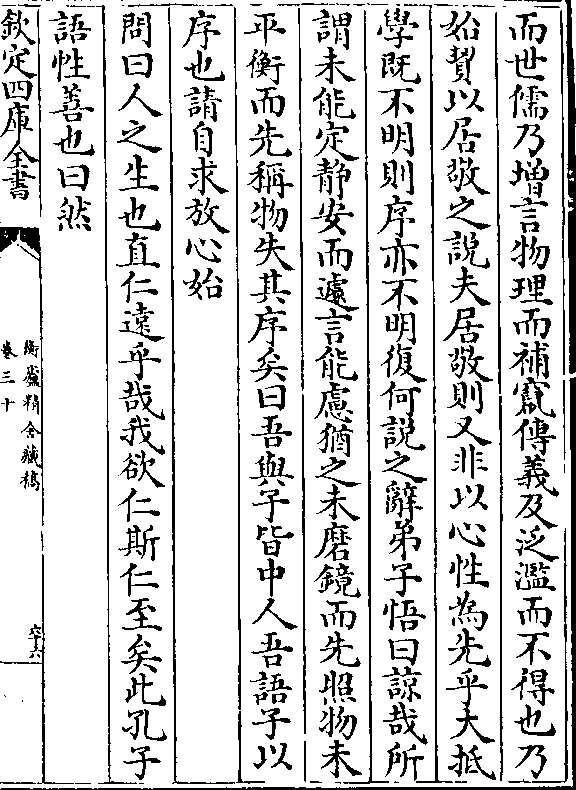 而世儒乃增言物理而補竄傳義及泛濫而不得也乃
始贊以居敬之說夫居敬則又非以心性為先乎大抵
學既不明則序亦不明復何說之辭弟子悟曰諒哉所
謂未能定靜安而遽言能慮猶之未磨鏡而先照物未
平衡而先稱物失其序矣曰吾與子皆中人吾語子以
序也請自求放心始
問曰人之生也直仁遠乎哉我欲仁斯仁至矣此孔子
語性善也曰然
欽定四庫全書
衡廬精舍藏稿
卷三十